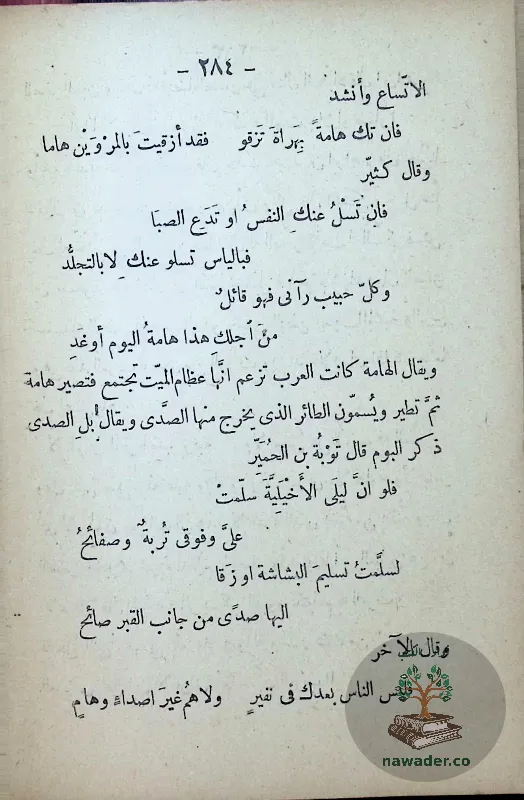 - ٢٨٤ -
الاتّساع وأنشد
فان تك هامةً بِهَراةَ تَزقو فقد أزقيتَ بالمرْوَيْن هاما
وقال كثيّر
فاِن تَسْلُ عنكِ النفسُ او تَدَعِ الصبَا
فبالياس تسلو عنكِ لا بالتجلُّد
وكلّ حبيب رآنى فهو قائلٌ
منَ اْجلكِ هذا هامةُ اليوم أوغَدِ
ويقال الهامة كانت العرب تزعم انّها عظام الميّت تجتمع فتصير هامة
ثمَّ تطير ويُسمّون الطائر الذى يخرج منها الصَّدَى ويقال بل الصدى
ذكر البوم قال تَوْبةُ بن الحُمَيِّر
فلو انَّ ليلَى الأَخْيَلِيَّةَ سلّمتْ
علىَّ وفوقى تُربةٌ وصفائحُ
لسلَّمتُ تسليمَ البشاشة او زَقا
اليها صدًى من جانب القبر صائح
وقال الآخر
الناس بعدك فى نفيرٍ ولاهُمْ غيرَ اصداءٍ وهامِ
nawader.co